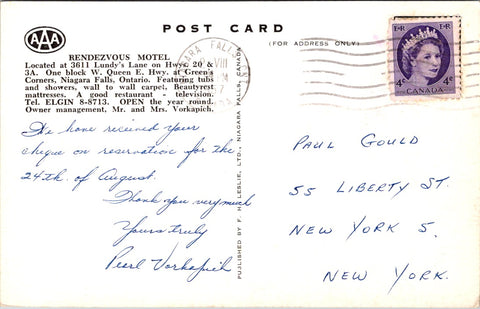 POST CARD
AAA
(FOR ADDRESS ONLY)
RENDEZVOUS MOTEL
Located at 3611 Lundy's Lane on Hwys. 20 &
3A. One block W. Queen E. Hwy. at Green's
Corners, Niagara Falls, Ontario. Featuring tubs
and showers, wall to wall carpet, Beautyrest
mattresses. A good restaurant - television.
Tel. ELGIN 8-8713. OPEN the year round.
Owner management, Mr. and Mrs. Vorkapich.
We have received your
cheque on reservation for the
24th. of August.
Thank you very much
Yours truly
Pearl Vorkapich
PUBLISHED BY F. H. LESLIE, LTD., NIAGARA FALLS, CANADA
NIAGARA FALLS
VIII
E II R
E II R
4¢
4¢
CANADA
PAUL GOULD
55 LIBERTY ST.
NEW YORK 5.
NEW YORK.